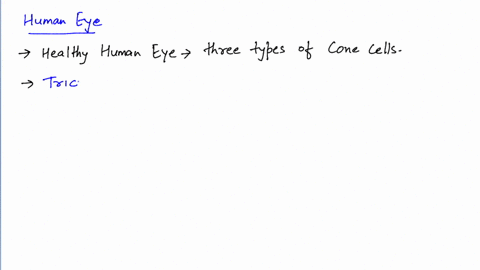 Human Eye
→ Healthy Human Eye → three types of Cone Cells.
→ Tric